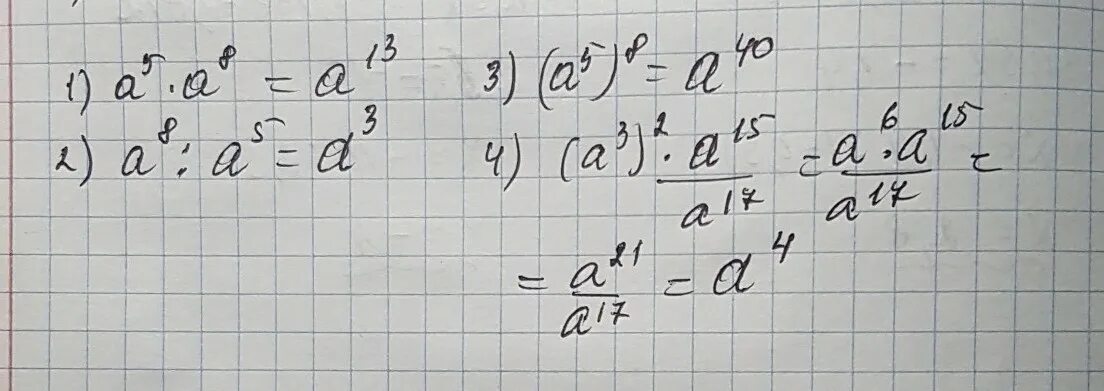 1) a⁵ · a⁸ = a¹³
2) a⁸ : a⁵ = a³
3) (a⁵)⁸ = a⁴⁰
4) (a³)² · a¹⁵ / a¹⁷ = a⁶ · a¹⁵ / a¹⁷ =
= a²¹ / a¹⁷ = a⁴